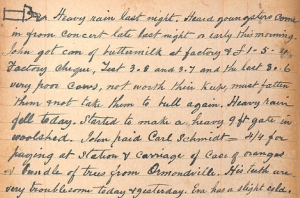 Heavy rain last night. Heard youngsters come
in from concert late last night or early this morning.
John got can of buttermilk at factory & £1-5-
Factory cheque, Test 3.8 and 3.7 and the last 3.6
very poor cows, not worth their keep, must fatten
them & not take them to bull again. Heavy rain
fell today. Started to make a heavy 9ft gate in
woolshed. John paid Carl Schmidt 2/4 for
paying at Station & Carriage of Case of oranges
& bundle of trees from Ormondville. His teeth are
very troublesome today & yesterday. Em has a slight cold.